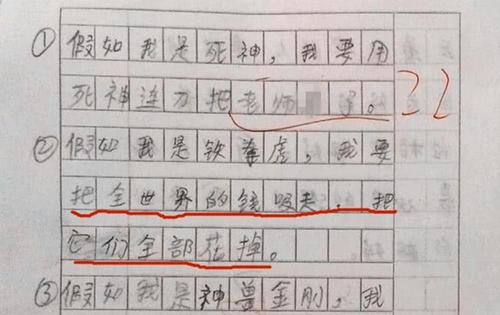 ① 假如我是死神，我要用
死神连刀把老师 了。
② 假如我是铁拳虎，我要
把全世界的钱吸夫，把
它们全部花掉。
③ 假如我是神兽金刚，我